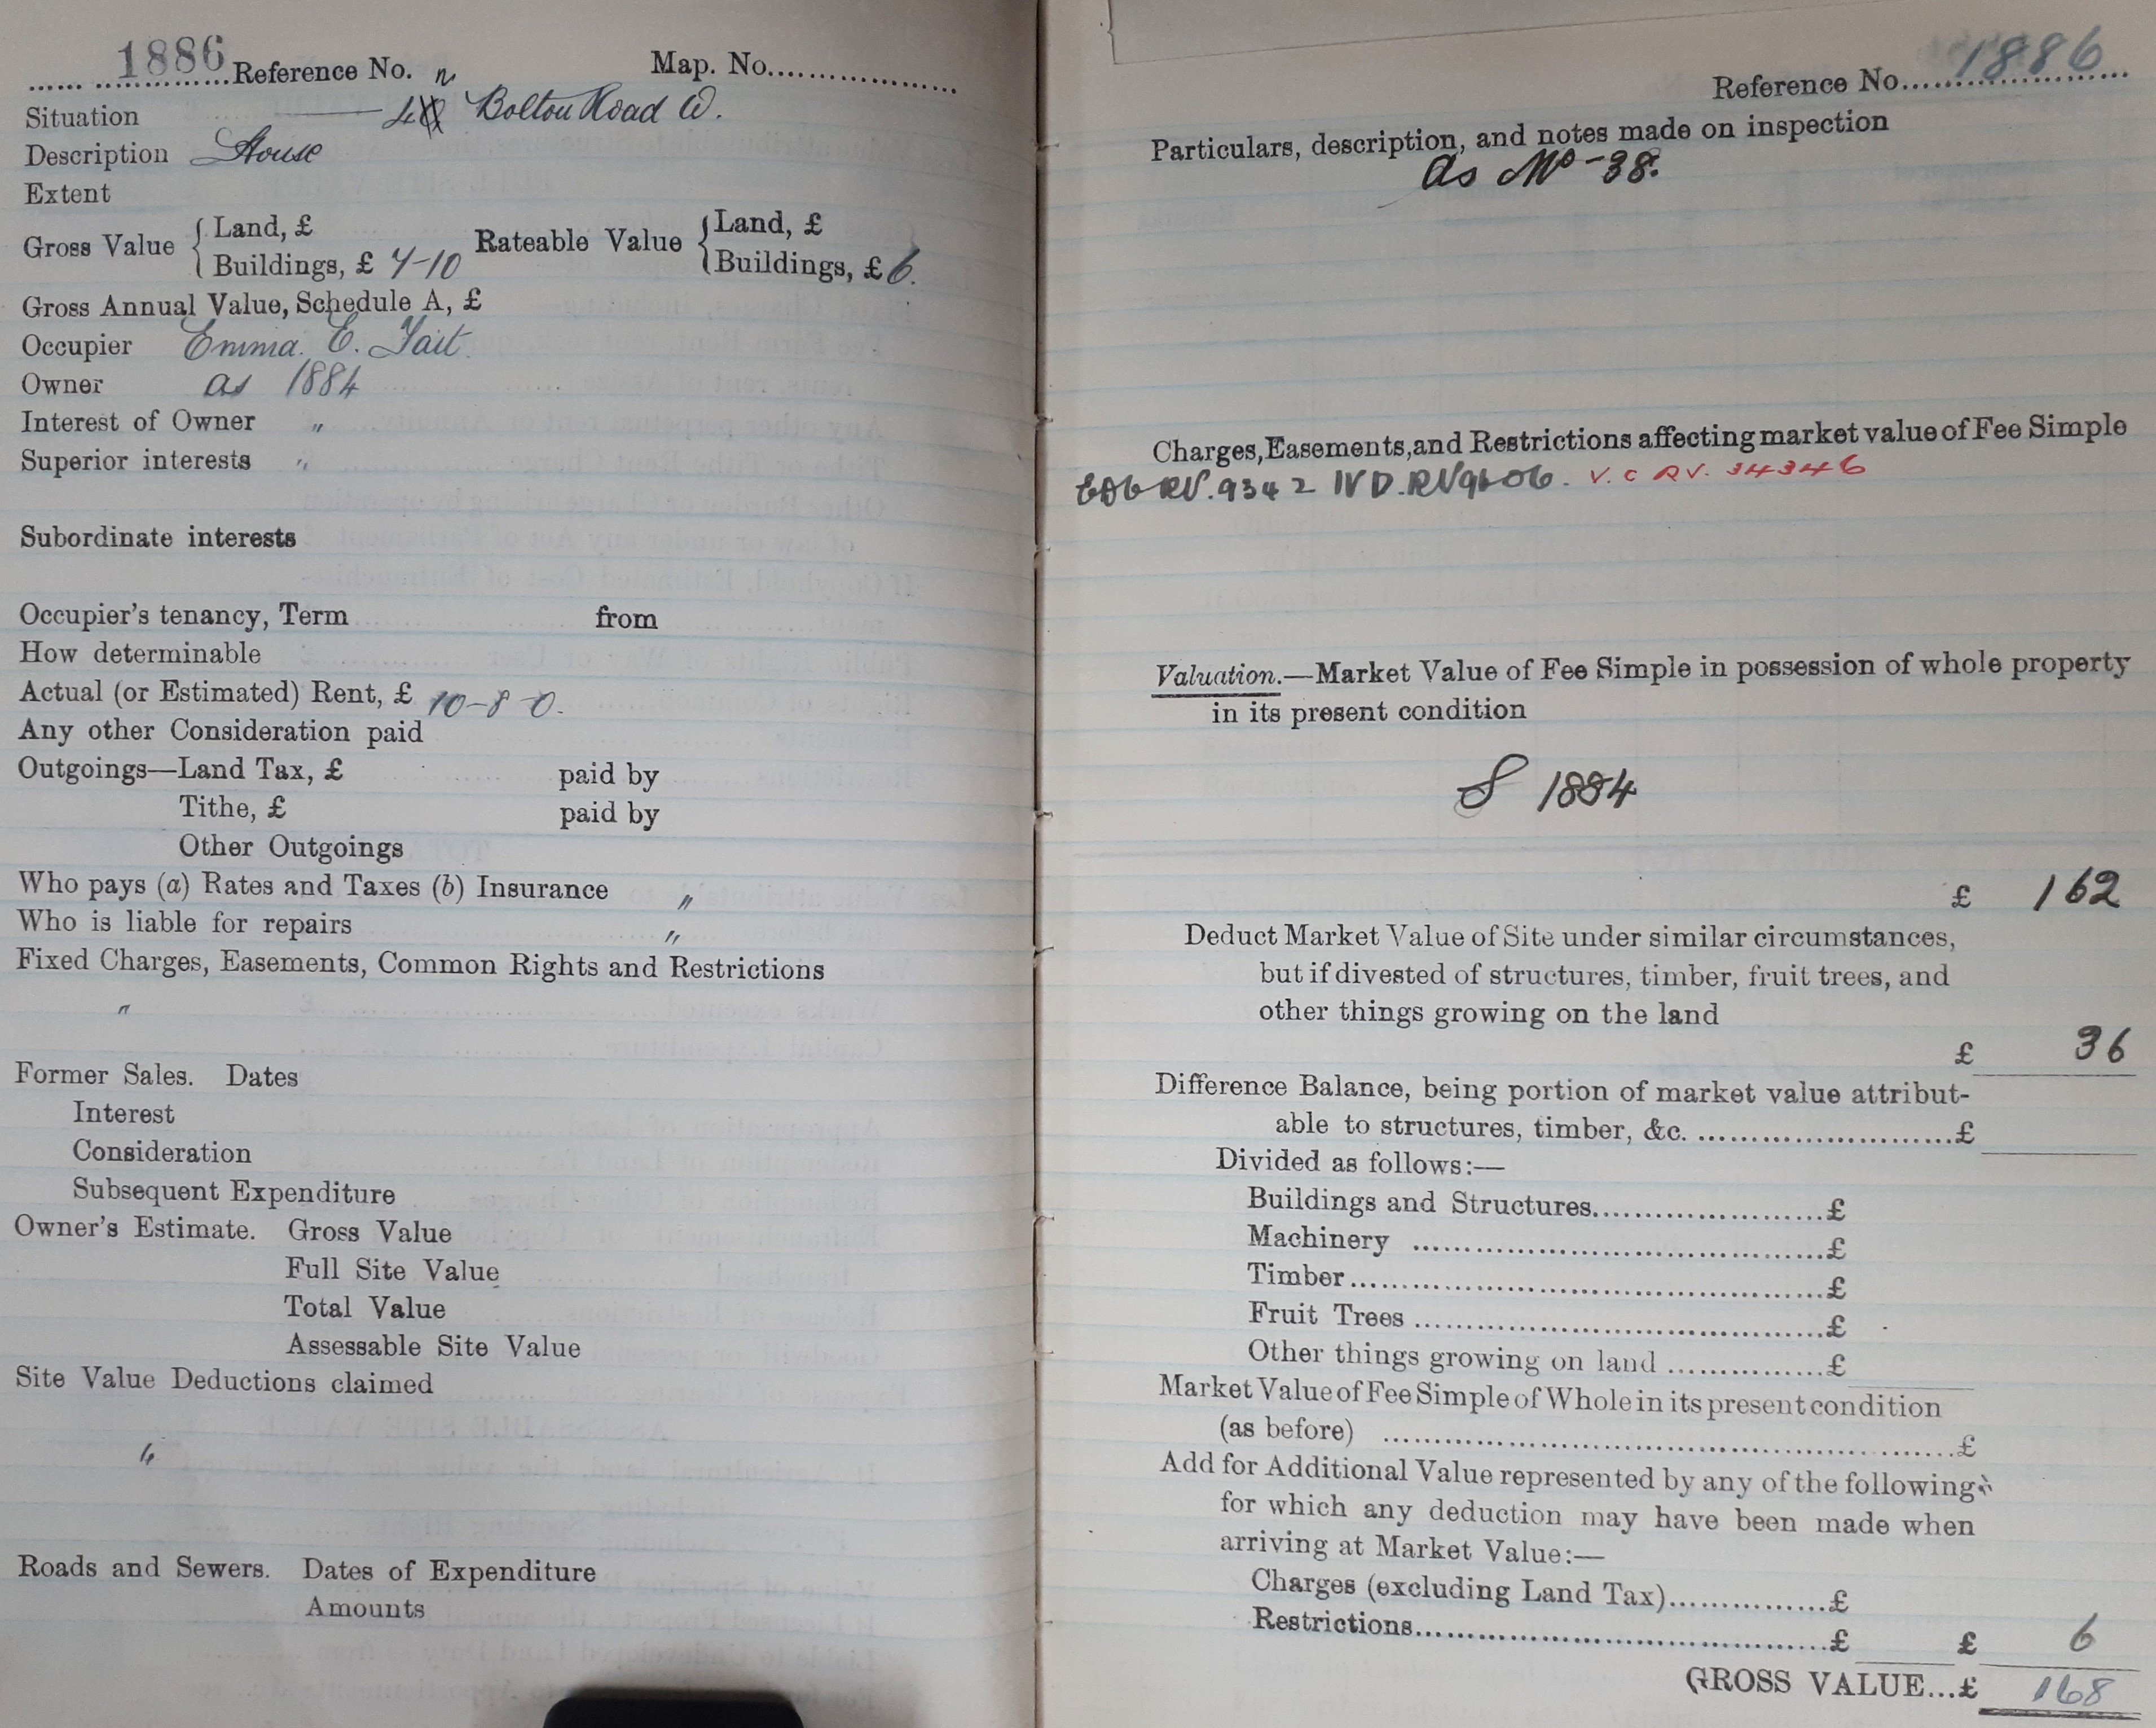 1886 Reference No. Map. No.
n
Situation 4 Bolton Road W.
Description House
Extent
Gross Value { Land, £ Rateable Value { Land, £
Buildings, £ 7-10 Buildings, £ 6.
Gross Annual Value, Schedule A, £
Occupier Emma. E. Tait.
Owner as 1884
Interest of Owner "
Superior interests "
Subordinate interests
Occupier's tenancy, Term from
How determinable
Actual (or Estimated) Rent, £ 10-8-0.
Any other Consideration paid
Outgoings—Land Tax, £ paid by
Tithe, £ paid by
Other Outgoings
Who pays (a) Rates and Taxes (b) Insurance "
Who is liable for repairs "
Fixed Charges, Easements, Common Rights and Restrictions
"
Former Sales. Dates
Interest
Consideration
Subsequent Expenditure
Owner's Estimate. Gross Value
Full Site Value
Total Value
Assessable Site Value
Site Value Deductions claimed
"
Roads and Sewers. Dates of Expenditure
Amounts
Reference No. 1886
Particulars, description, and notes made on inspection
as No-38.
Charges, Easements, and Restrictions affecting market value of Fee Simple
RV. 9342 IVD. RV9606. V.C RV. 34346
Valuation.—Market Value of Fee Simple in possession of whole property
in its present condition
S 1884
£ 162
Deduct Market Value of Site under similar circumstances,
but if divested of structures, timber, fruit trees, and
other things growing on the land
£ 36
Difference Balance, being portion of market value attribut-
able to structures, timber, &c. £
Divided as follows:—
Buildings and Structures £
Machinery £
Timber £
Fruit Trees £
Other things growing on land £
Market Value of Fee Simple of Whole in its present condition
(as before) £
Add for Additional Value represented by any of the following
for which any deduction may have been made when
arriving at Market Value:—
Charges (excluding Land Tax) £
Restrictions £ £ 6
GROSS VALUE...£ 168